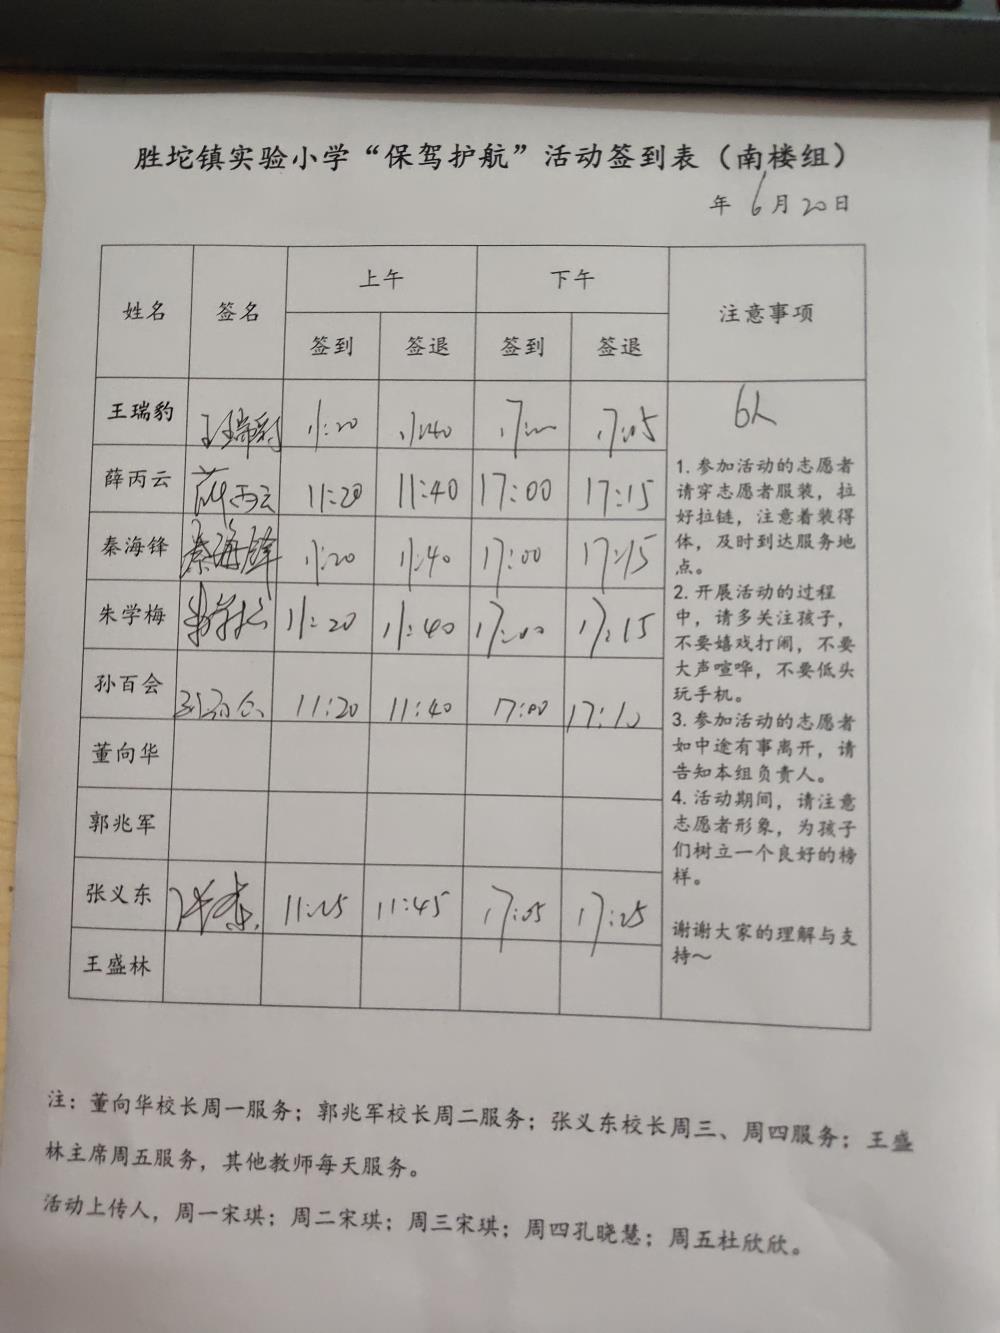 胜坨镇实验小学“保驾护航”活动签到表（南楼组）
年 6月20日
姓名 签名 上午 下午 注意事项
签到 签退 签到 签退
王瑞豹 王瑞豹 11:20 11:40 17:00 17:05
薛丙云 薛丙云 11:20 11:40 17:00 17:15
秦海锋 秦海锋 11:20 11:40 17:00 17:15
朱学梅 11:20 11:40 17:00 17:15
孙百会 11:20 11:40 17:00 17:10
董向华
郭兆军
张义东 11:25 11:45 17:05 17:25
王盛林
6人
1. 参加活动的志愿者
请穿志愿者服装，拉
好拉链，注意着装得
体，及时到达服务地
点。
2. 开展活动的过程
中，请多关注孩子，
不要嬉戏打闹，不要
大声喧哗，不要低头
玩手机。
3. 参加活动的志愿者
如中途有事离开，请
告知本组负责人。
4. 活动期间，请注意
志愿者形象，为孩子
们树立一个良好的榜
样。
谢谢大家的理解与支
持～
注：董向华校长周一服务；郭兆军校长周二服务；张义东校长周三、周四服务；王盛
林主席周五服务，其他教师每天服务。
活动上传人，周一宋琪；周二宋琪；周三宋琪；周四孔晓慧；周五杜欣欣。